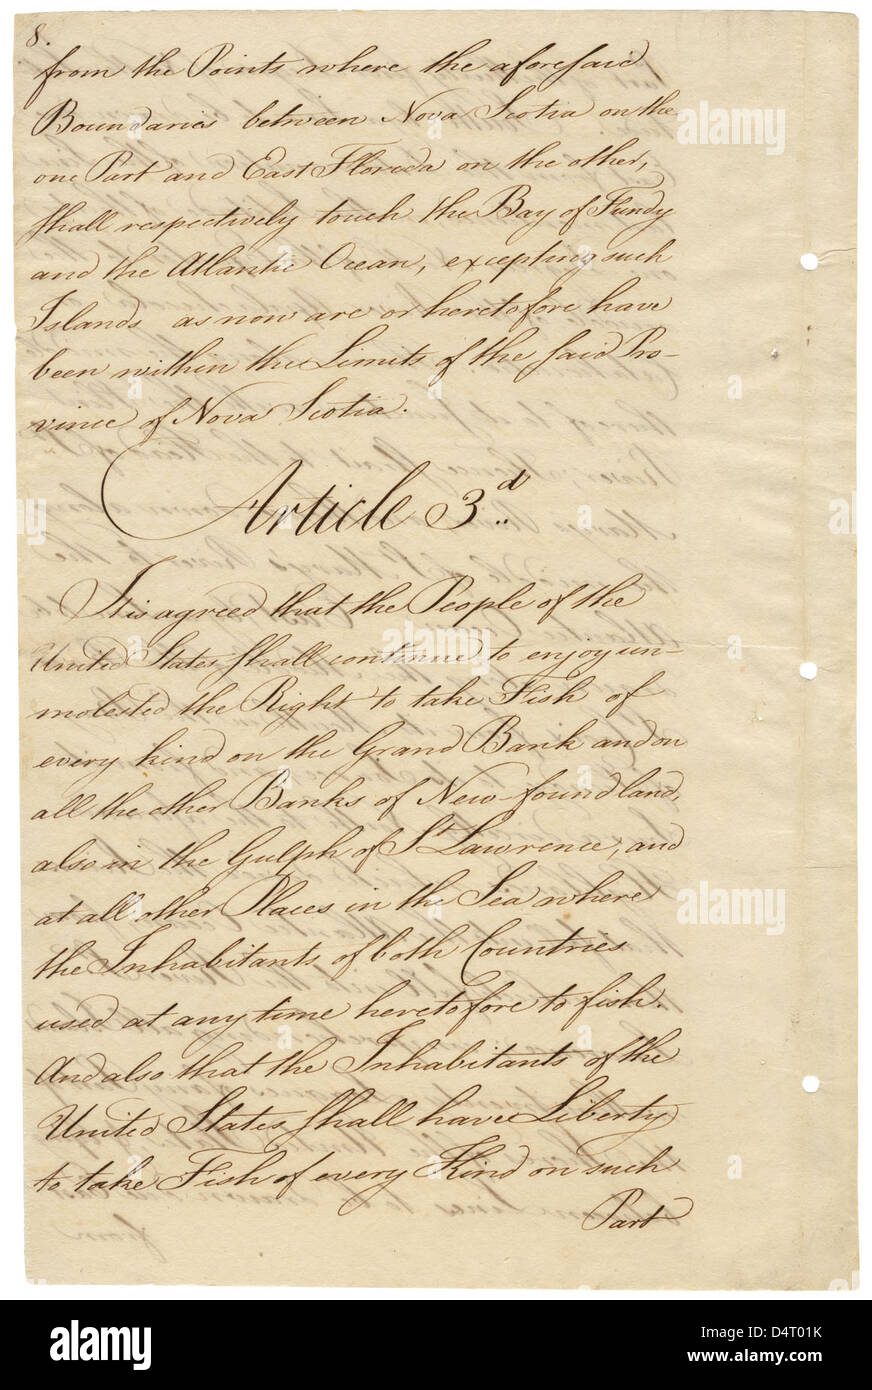 8.
from the Points where the aforesaid
Boundaries between Nova Scotia on the
one Part and East Florida on the other,
shall respectively touch the Bay of Fundy
and the Atlantic Ocean, excepting such
Islands as now are or heretofore have
been within the Limits of the said Pro-
vince of Nova Scotia.
Article 3.d
It is agreed that the People of the
United States shall continue to enjoy un-
molested the Right to take Fish of
every kind on the Grand Bank and on
all the other Banks of New-foundland,
also in the Gulph of St Lawrence, and
at all other Places in the Sea where
the Inhabitants of both Countries
used at any time heretofore to fish.
And also that the Inhabitants of the
United States shall have Liberty
to take Fish of every Kind on such
Part
alamy
alamy
alamy
alamy
alamy
alamy
Image ID: D4T01K
www.alamy.com